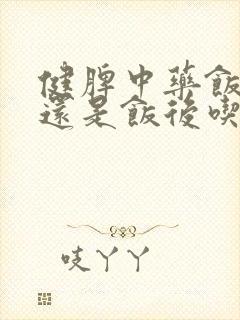 健脾中藥飯
還是飯後喫
吱丫丫